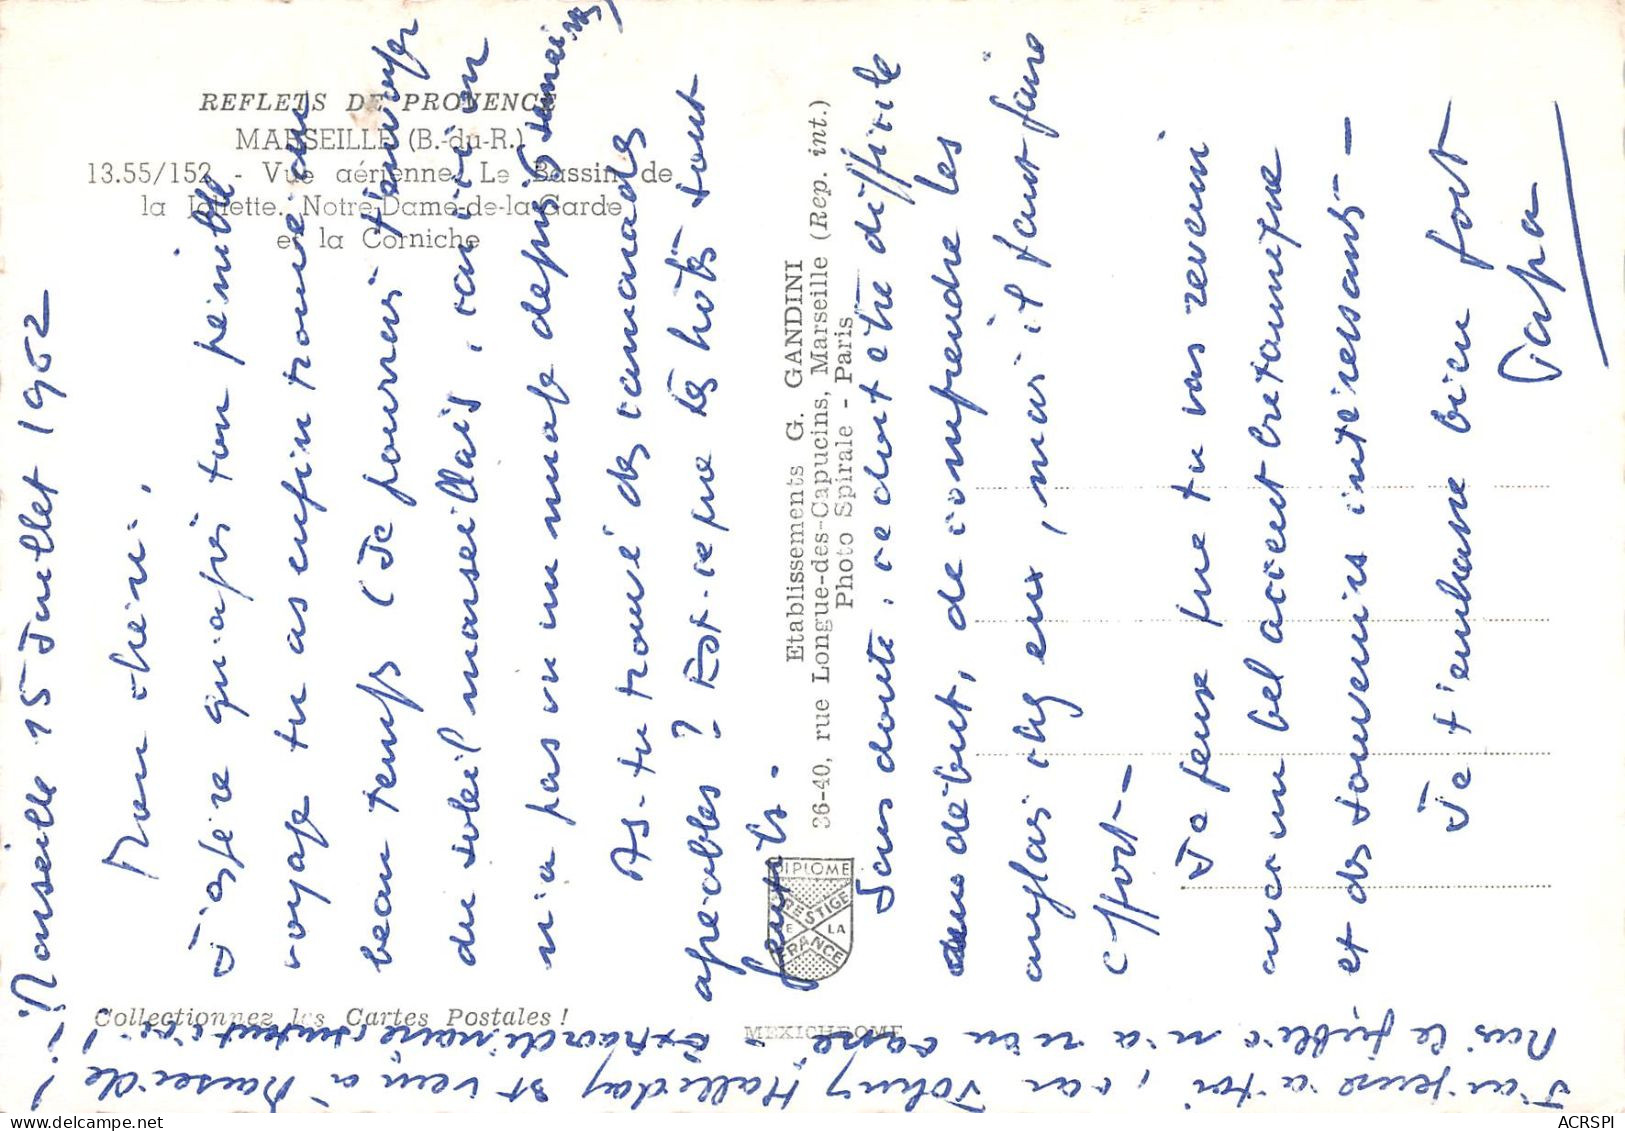 REFLETS DE PROVENCE
MARSEILLE (B.-du-R.)
13.55/152 - Vue aérienne. Le Bassin de
la Joliette. Notre-Dame-de-la-Garde
et la Corniche
Collectionnez les Cartes Postales !
MEXICHROME
Etablissements G. GANDINI
36-40, rue Longue-des-Capucins, Marseille (Rep. int.)
Photo Spirale - Paris
DIPLOME
PRESTIGE
DE LA
FRANCE
Marseille 15 Juillet 1962
Mon chéri,
J'espère qu'après ton pénible
voyage tu as enfin trouvé du
beau temps (Je pourrais t'envoyer
du soleil marseillais, car ici on
n'a pas vu un nuage depuis 5 semaines)
As-tu trouvé des camarades
agréables ? Est-ce que tes hôtes sont
gentils.
Sans doute, ce doit être difficile
au début, de comprendre les
anglais chez eux, mais il faut faire
effort -
Je pense que tu vas revenir
avec un bel accent britannique
et des souvenirs intéressants -
Je t'embrasse bien fort
Papa
J'ai pensé à toi, car Johny Halliday est venu à Marseille !
Mais le public n'a rien cassé, extraordinaire surtout ici !!
ACRSPI